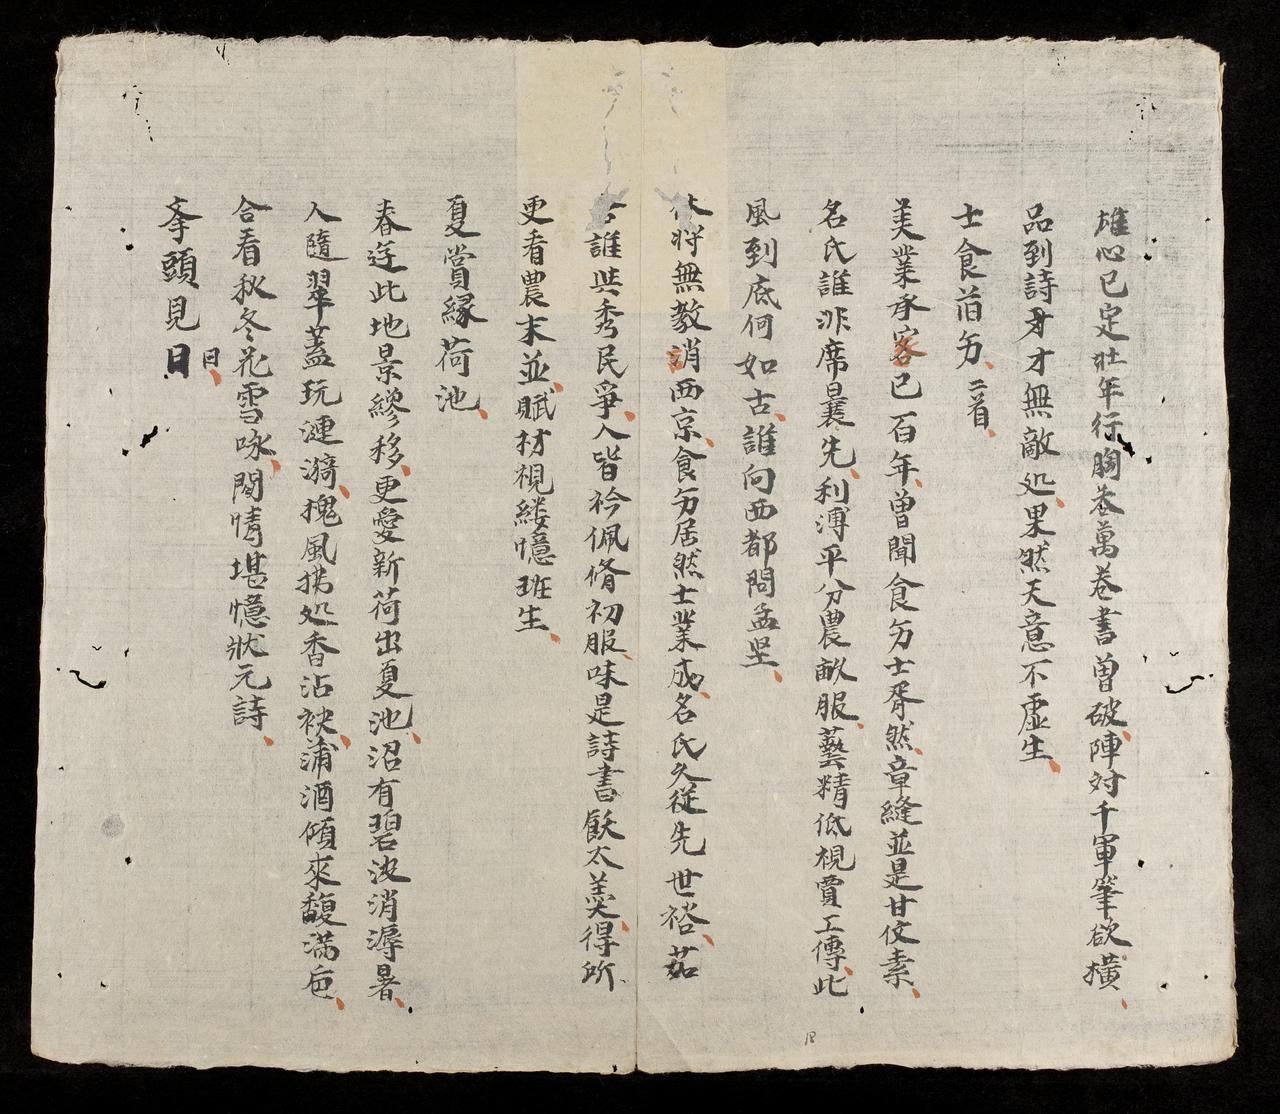 雄心已定壮年行胸巻萬卷書曽破陣対千軍筆欲横
品到詩才才無敵处果然天意不虚生
士食旧労二首
美業承客已百年曽聞食労士胥然章縫並是甘伩素
名氏誰非席曩先利溥平分農畝服藝精低視賈工傳此
風到底何如古誰向西都問孟坚
休将無教消西京食労居然士業成名氏久従先世裕茹
誰與秀民爭人皆衿佩脩初服味是詩書飫太羮得所
更看農末並賦材視縷憶班生
夏賞緑荷池
春迬此地景繆移更愛新荷出夏池沼有碧波消溽暑
人隨翠蓋玩漣漪槐風拂处香沾袂蒲酒傾來馥満巵
合看秋冬花雪咏閒情堪憶狀元詩
夆頭見日
日
18